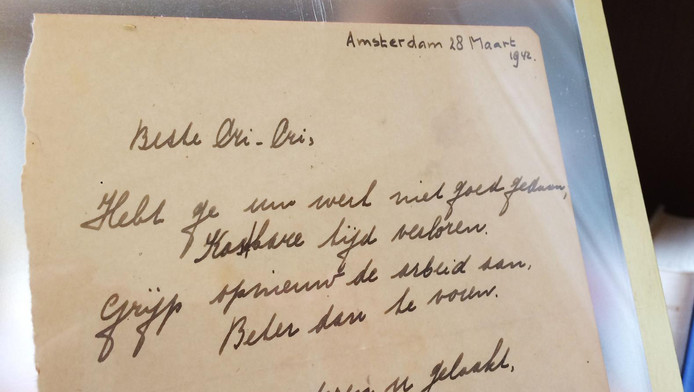 Amsterdam 28 Maart
1942.
Beste Cri-Cri,
Hebt ge uw werk niet goed gedaan,
Kostbare tijd verloren.
Grijp opnieuw de arbeid aan,
Beter dan te voren.
u gelaakt,